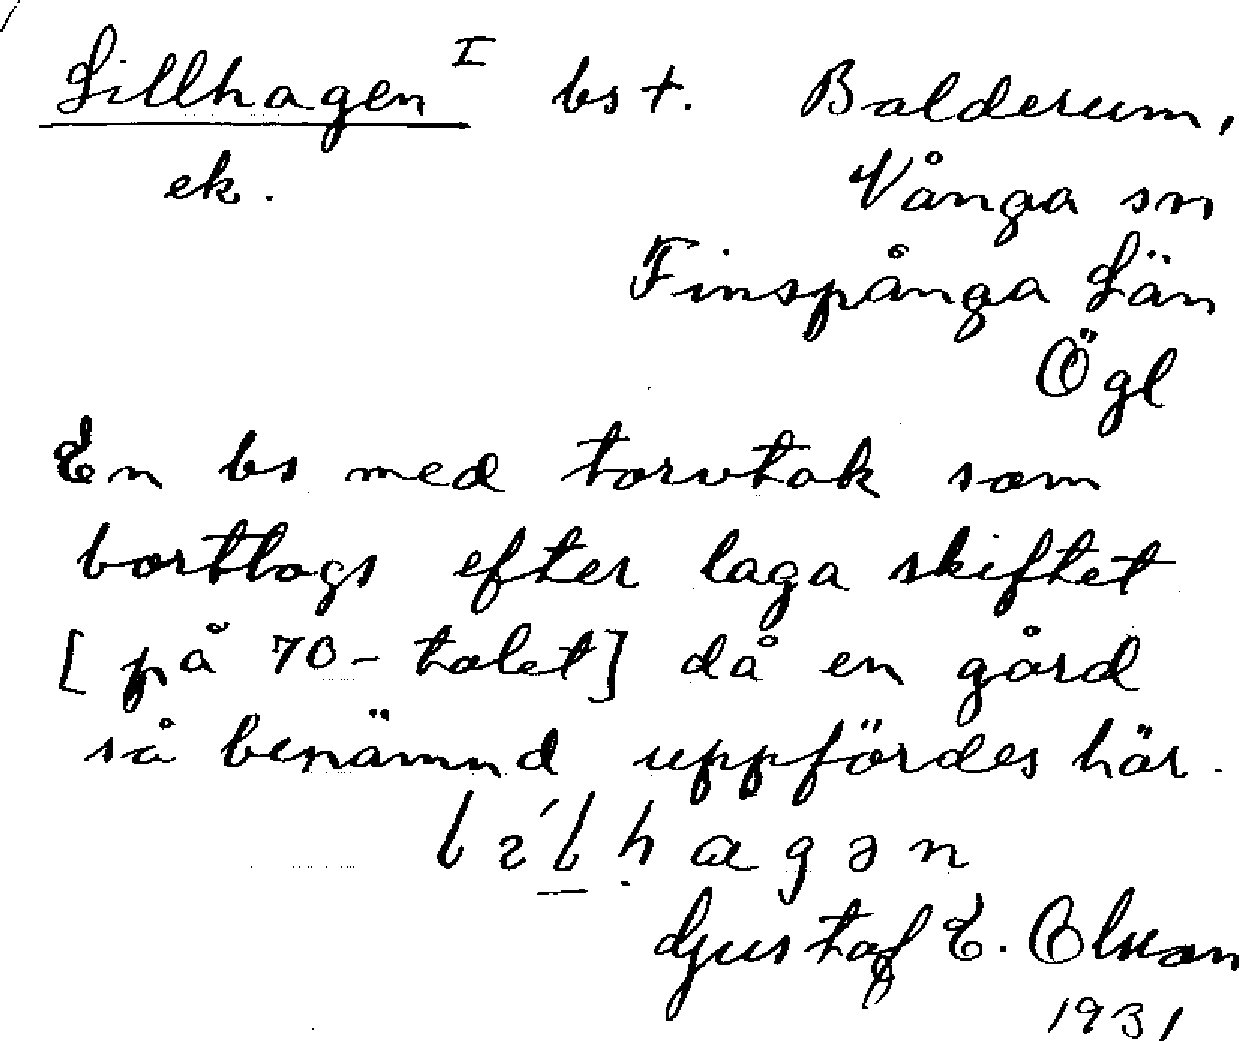 Lillhagen I bst. Balderum,
ek. Vånga sn
Finspånga Län
Ögl
En bs med torvtak som
borttogs efter laga skiftet
[på 70-talet] då en gård
så benämnd uppfördes här.
Gustaf E. Olsson
1931